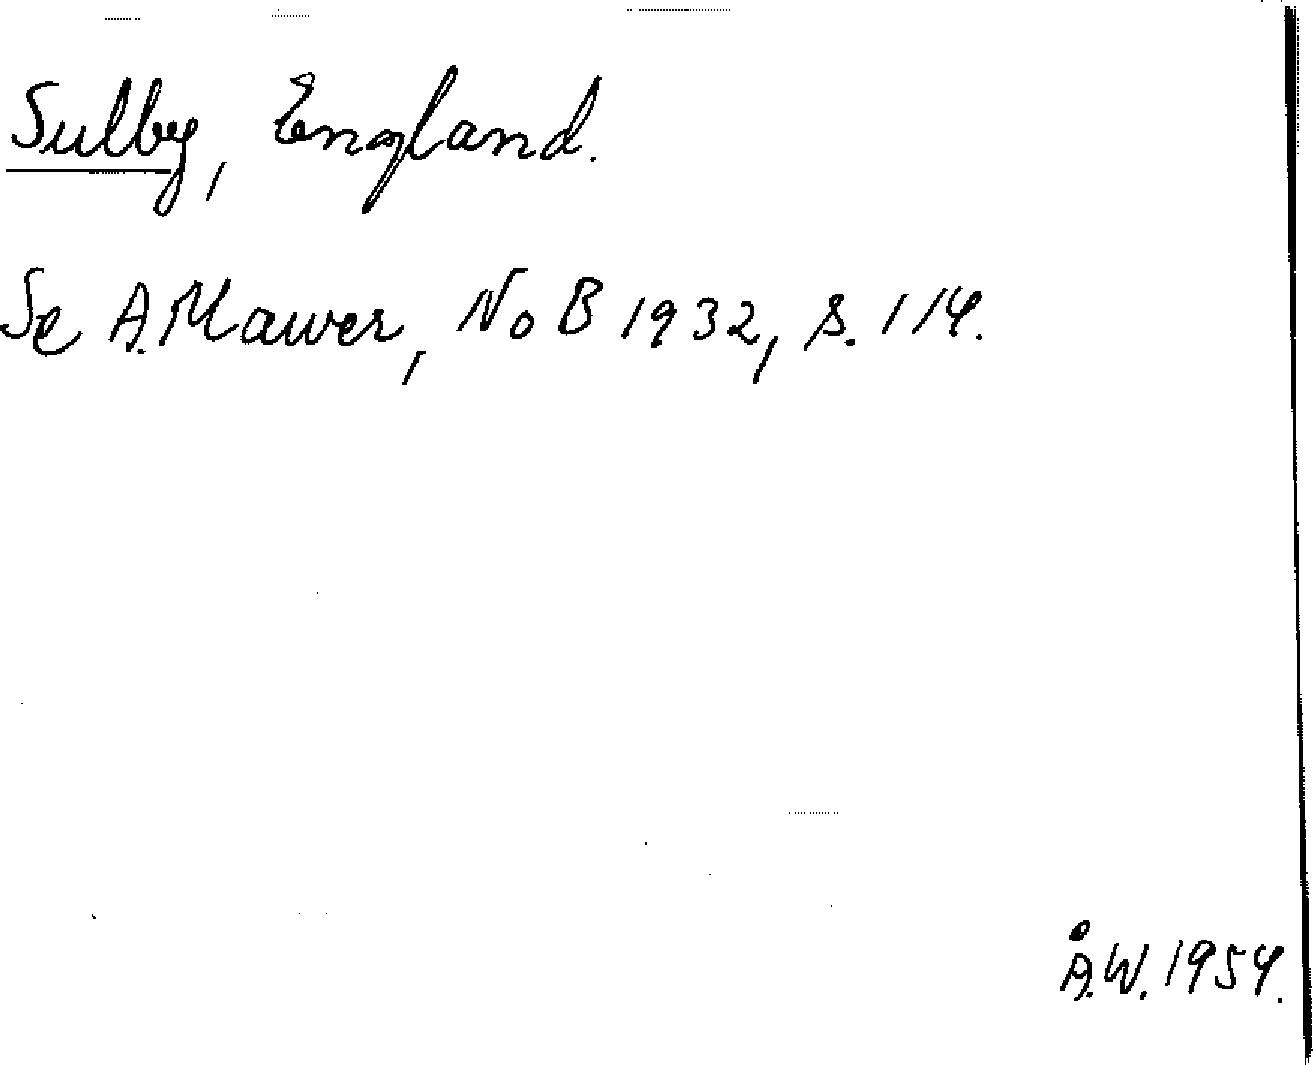 Sulby, England.
Se A. Mawer, NoB 1932, s. 114.
Å.W. 1954.